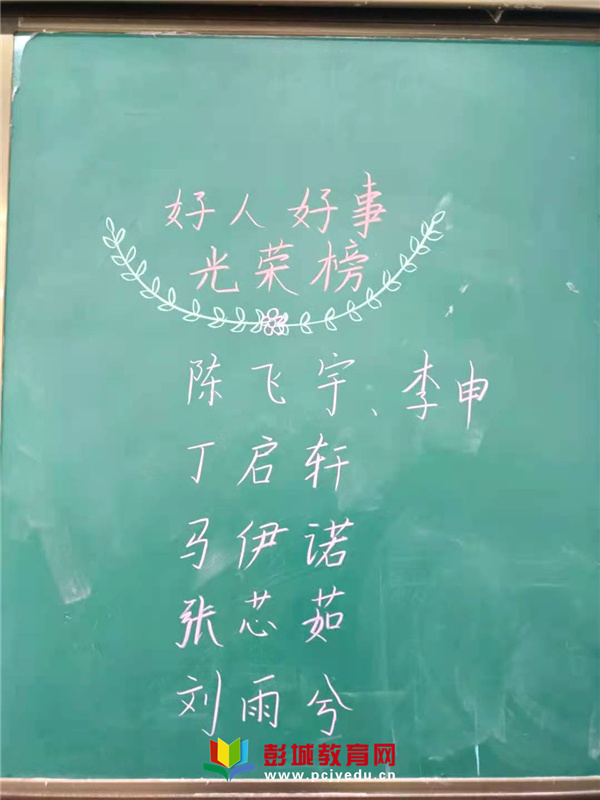 好人好事
光荣榜
陈飞宇、李申
丁启轩
马伊诺
张芯茹
刘雨兮
彭城教育网
www.pcjyedu.cn